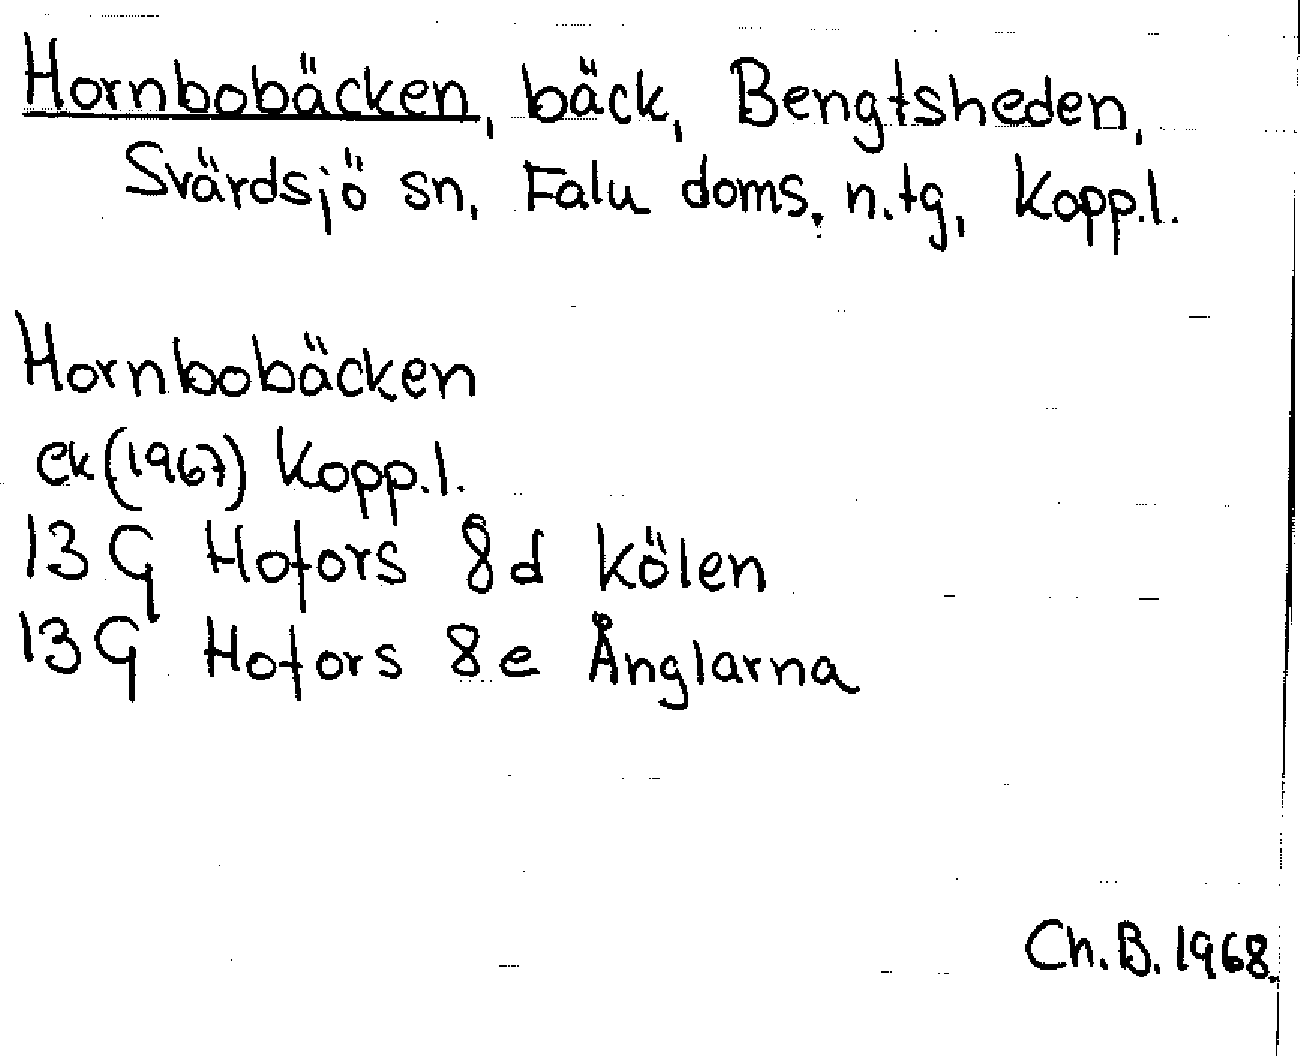 Hornbobäcken, bäck, Bengtsheden,
Svärdsjö sn, Falu doms. n.tg, Kopp.l.
Hornbobäcken
ek (1967) Kopp.l.
13G Hofors 8d Kölen
13G Hofors 8e Ånglarna
Ch.B. 1968.